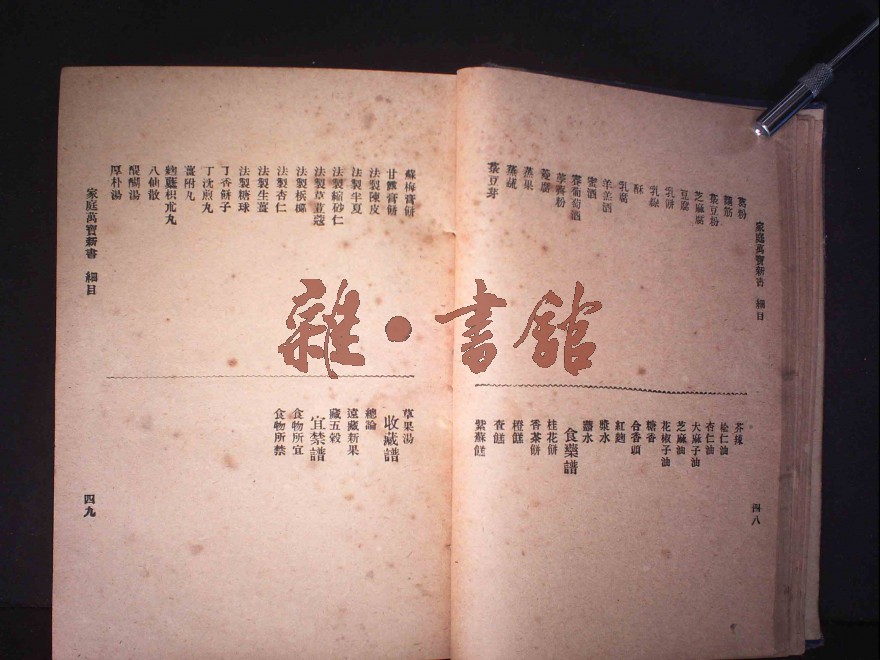 家庭萬寶新書 細目
葛粉
麵筋
菉豆粉
芝麻腐
豆腐
乳餅
乳線
酥
乳腐
羊羔酒
蜜酒
賽葡萄酒
菱腐
蒸果
蒸蔬
菉豆芽
芥辣
松仁油
杏仁油
大麻子油
芝麻油
花椒子油
糖香
合香頭
紅麴
漿水
虀水
食藥譜
桂花餅
香茶餅
橙餻
查餻
紫蘇餻
四八
蘇梅膏餅
甘露膏餅
法製陳皮
法製半夏
法製縮砂仁
法製草荳蔻
法製檳榔
法製杏仁
法製生薑
法製糖球
丁香餅子
丁沈煎丸
薑附丸
麴櫱枳朮丸
八仙散
醍醐湯
厚朴湯
家庭萬寶新書 細目
草果湯
收藏譜
總論
遠藏新果
藏五穀
宜禁譜
食物所宜
食物所禁
四九
雜·書館